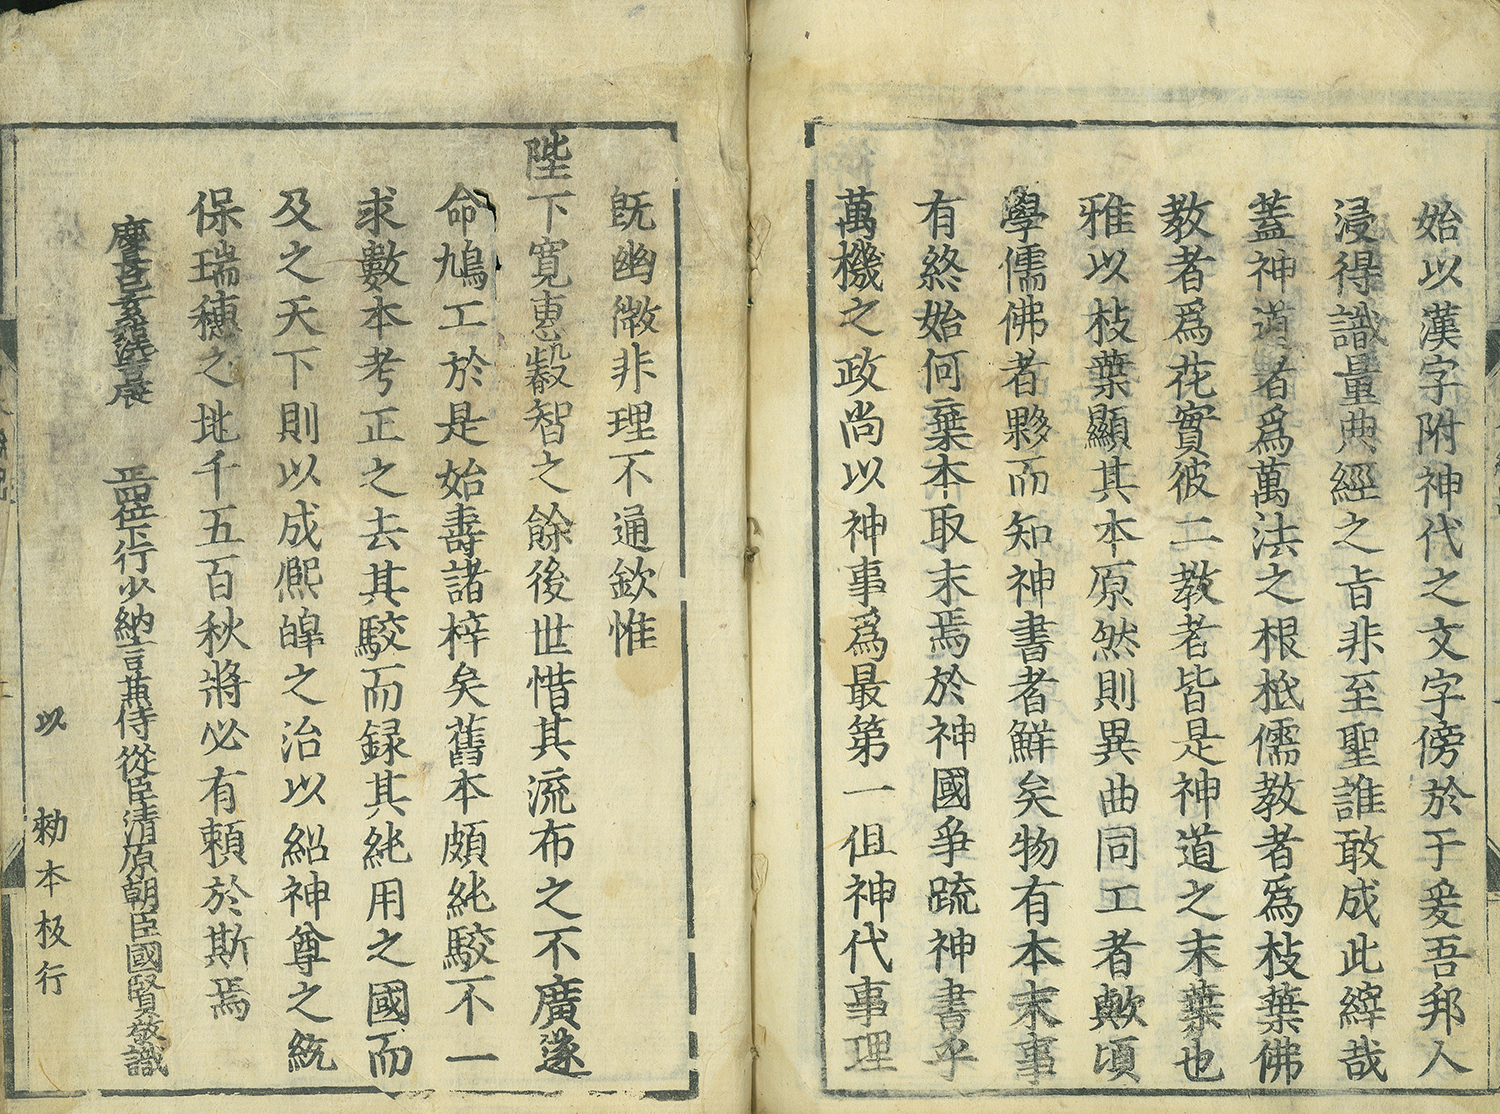 始以漢字附神代之文字傍於于爰吾邦人
浸得識量典經之旨非至聖誰敢成此縡哉
蓋神道者爲萬法之根柢儒教者爲枝葉佛
教者爲花實彼二教者皆是神道之末葉也
雅以枝葉顯其本原然則異曲同工者歟頃
學儒佛者夥而知神書者鮮矣物有本末事
有終始何棄本取末焉於神國爭疏神書乎
萬機之政尚以神事爲最第一但神代事理
既幽微非理不通欽惟
陛下寛惠叡智之餘後世惜其流布之不廣遂
命鳩工於是始壽諸梓矣舊本頗純駁不一
求數本考正之去其駁而録其純用之國而
及之天下則以成熈皥之治以紹神尊之統
保瑞穗之地千五百秋將必有頼於斯焉
慶長 正四位下行少納言兼侍從臣清原朝臣國賢敬識
以 勅本板行